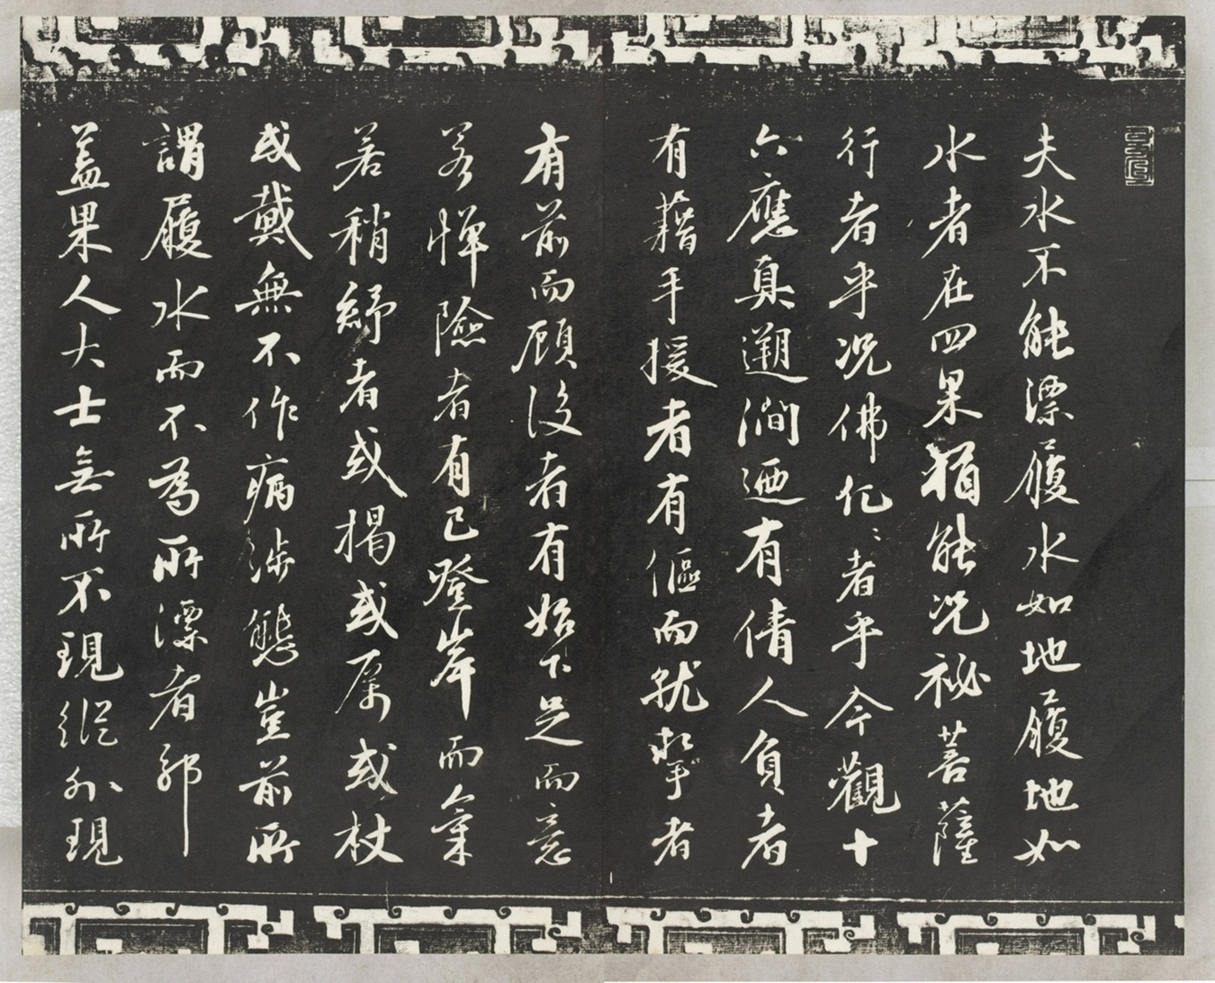 夫水不能漂履水如地履地如
水者在四果猶能況祕菩薩
行者乎況佛化〻者乎今觀十
六應真遡澗迺有倩人負者
有藉手援者有傴而就掔者
有前而顧後者有始下足而意
若憚險者有已登岸而氣
若稍紓者或揭或厲或杖
或戴無不作病涉態豈前所
謂履水而不為所漂者耶
蓋果人大士無所不現縱外現